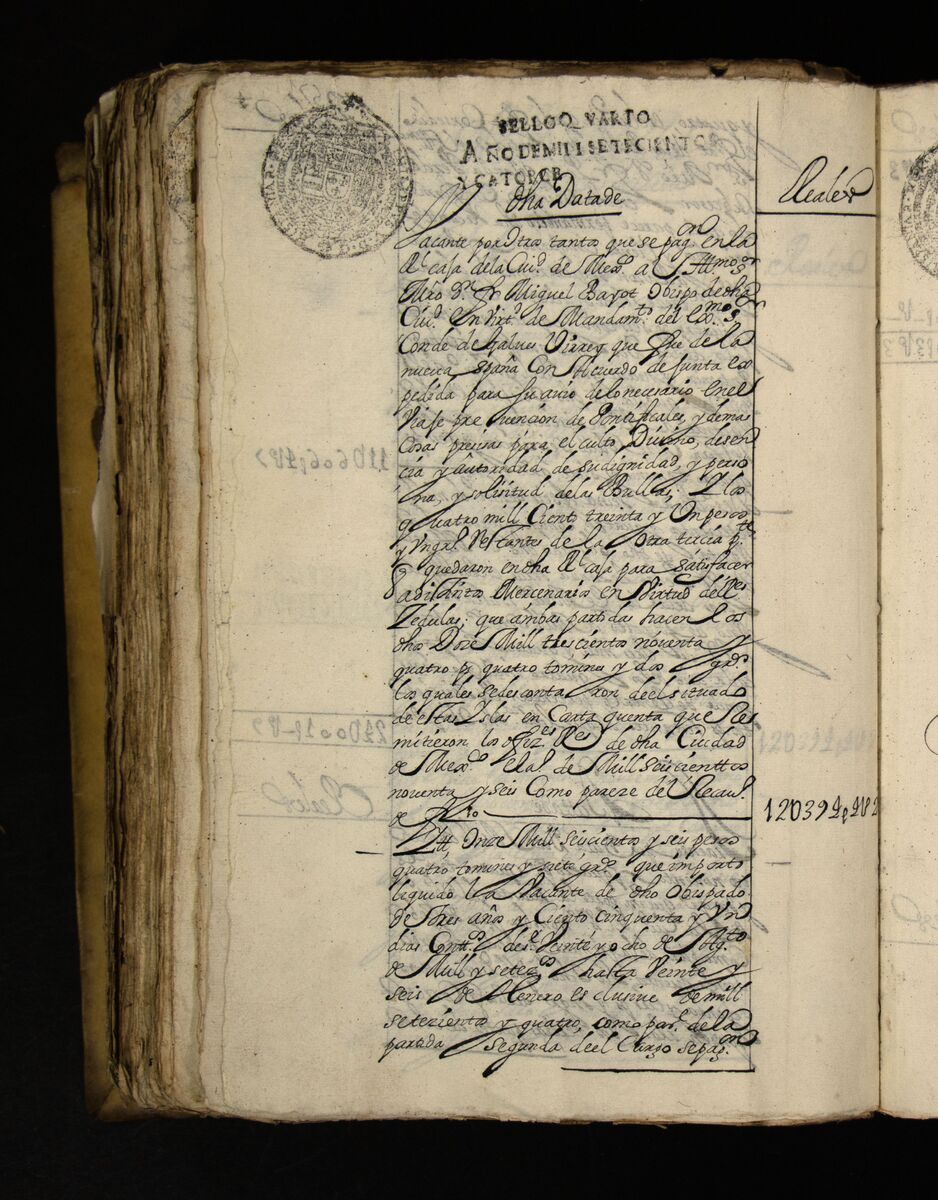 SELLO QVARTO
AÑO DE MIL I SETECIENTOS
Y CATORCE
dha Data de
Reales
Vacante por Otros tantos que se pagon en la
Rl caja de la Ciud de Mexco al Illmo Sr
Mro Dn Fr Miguel Bayot Obispo de dha
Ciud En Virtd de Mandamto del Exmo Sr
Conde de Galves Virrey que fue de la
nueva España Con Acuerdo de Junta ex
pedida para su avio de lo necesario en el
Viaje prevencion de Pontificales, y demas
Cosas presisas para el culto Divino, desen
cia y autoridad de su dignidad, y perso
na, y solisitud de las Bullas; Y los
quatro mill Ciento treinta y Un pesos
y Un gro Restantes de la Otra tercia pte
quedaron en dha Rl caja para satisfacer
Mercenarios en Virtud de Res
Zedulas; que ambas partidas hacen los
dhos Doze Mill trescientos noventa y
quatro ps quatro tomines y dos grs
los quales se descontaron de el situado
de estas Yslas en Carta quenta que Re
mitieron los ofizes Res de dha Ciudad
de Mexco el a.º de Mill seiscienttos
noventa y seis Como pareze del Recaud.
de
12U394p4U2
Ytt Onze Mill seiscientos y seis pesos
quatro tomines y siete grs que importo
liquido la Vacante de dho Obispado
de tres años y Ciento cinquenta y Un
dias Conttos desde Veinte y ocho de Agto
de Mill y setezos hasta Veinte y
seis de Henero esclusive de mill
setezientos y quatro, como pare de la
partida Segunda de el Cargo se pagon